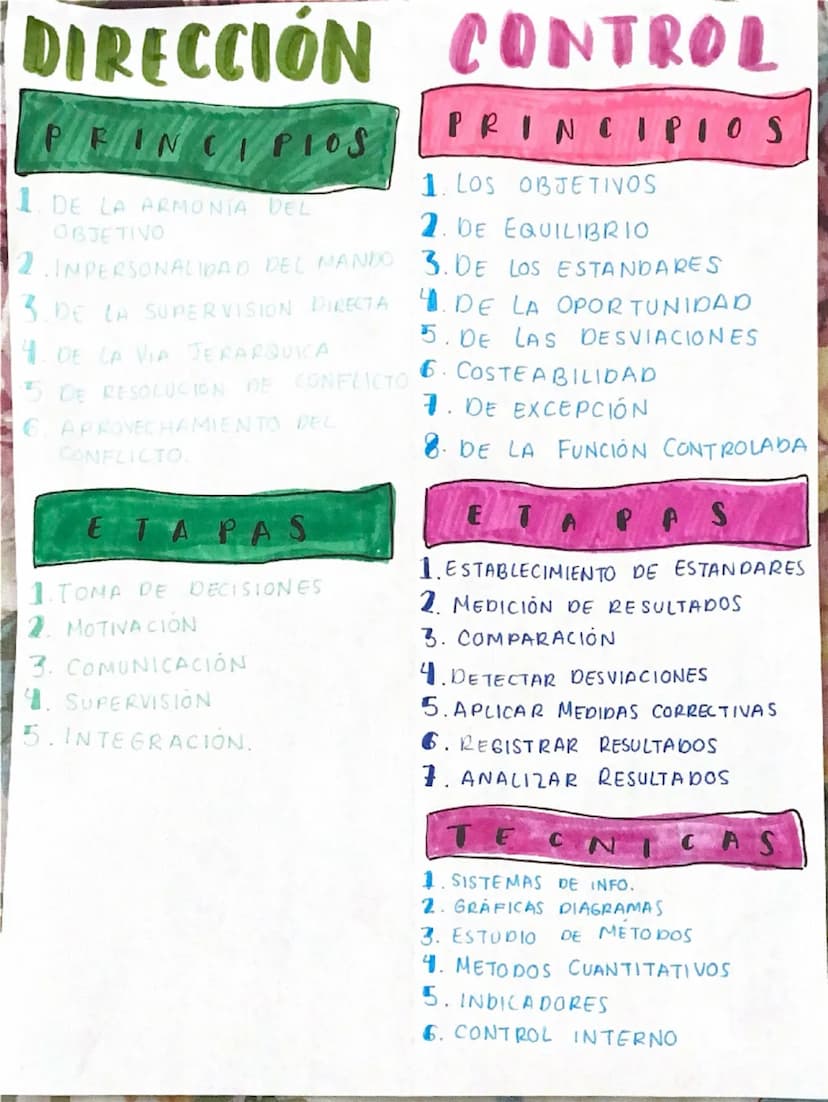 DIRECCIÓN
PRINCIPIOS
1. DE LA ARMONÍA DEL
OBJETIVO
2. IMPERSONALIDAD DEL MANDO
3. DE LA SUPERVISION DIRECTA
4. DE LA VIA JERARQUICA
5 DE RESOLUCION DE CONFLICTO
6. APROVECHAMIENTO DEL
CONFLICTO.
ETAPAS
1. TOMA DE DECISIONES
2. MOTIVACIÓN
3. COMUNICACIÓN
4. SUPERVISIÓN
5. INTEGRACIÓN.
CONTROL
PRINCIPIOS
1. LOS OBJETIVOS
2. DE EQUILIBRIO
3. DE LOS ESTANDARES
4. DE LA OPORTUNIDAD
5. DE LAS DESVIACIONES
6. COSTEABILIDAD
7. DE EXCEPCIÓN
8. DE LA FUNCIÓN CONTROLADA
ETAPAS
1. ESTABLECIMIENTO DE ESTANDARES
2. MEDICIÓN DE RESULTADOS
3. COMPARACIÓN
4. DETECTAR DESVIACIONES
5. APLICAR MEDIDAS CORRECTIVAS
6. REGISTRAR RESULTADOS
7. ANALIZAR RESULTADOS
TECNICAS
1. SISTEMAS DE INFO.
2. GRÁFICAS DIAGRAMAS
3. ESTUDIO DE MÉTODOS
4. METODOS CUANTITATIVOS
5. INDICADORES
6. CONTROL INTERNO